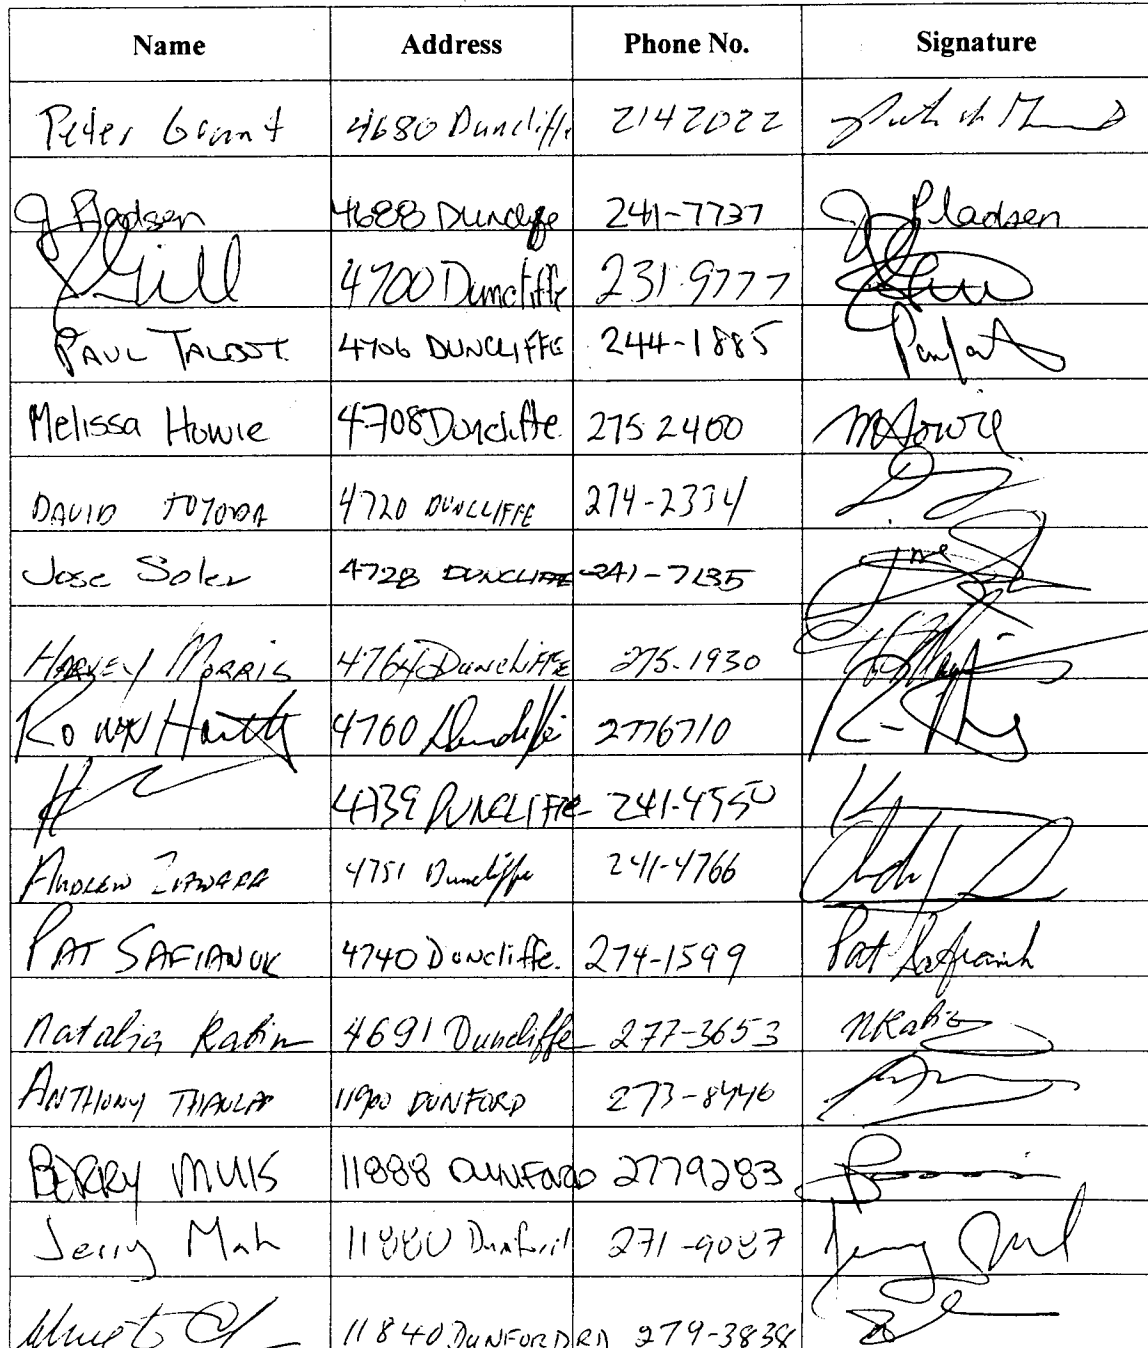 Name Address Phone No. Signature
Peter Grant 4680 Duncliffe 2142022
J Fladsen 4688 Duncliffe 241-7737 J Fladsen
Gill 4700 Duncliffe 231-9777
PAUL TALBOT 4706 DUNCLIFFE 244-1885
Melissa Howie 4708 Duncliffe 275 2400 MHowie
DAVID TOYODA 4720 DUNCLIFFE 274-2334
Jose Soler 4728 DUNCLIFFE 241-7235 Jose
HARVEY MORRIS 4764 DUNCLIFFE 275-1930
4760 Duncliffe 2776710
4739 DUNCLIFFE 241-4550
ANDREW 4751 Duncliffe 241-4766
PAT SAFIANUK 4740 Duncliffe. 274-1599 Pat Safianuk
Natalia Rabin 4691 Duncliffe 277-3653 NRabin
ANTHONY 11900 DUNFORD 273-8446
BERRY MUIS 11888 DUNFORD 2779283
Jerry Mah 11880 Dunford 271-9087 Jerry Mah
11840 DUNFORD RD 279-3838